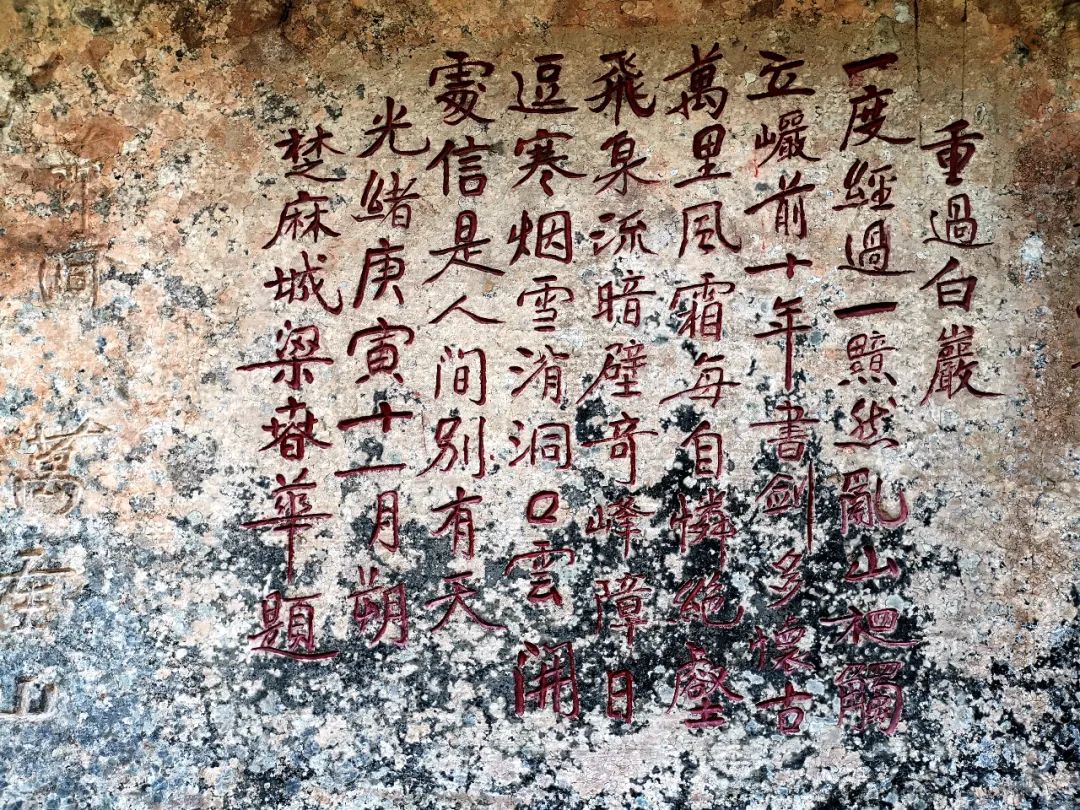 重過白巖
一度經過一黯然亂山觸
立巗前十年書劍多懷古
萬里風霜每自憐絕壑
飛泉流暗壁奇峰障日
逗寒烟雪消洞口雲開
處信是人間別有天
光緒庚寅十一月朔
楚麻城梁春華題
洞
萬山